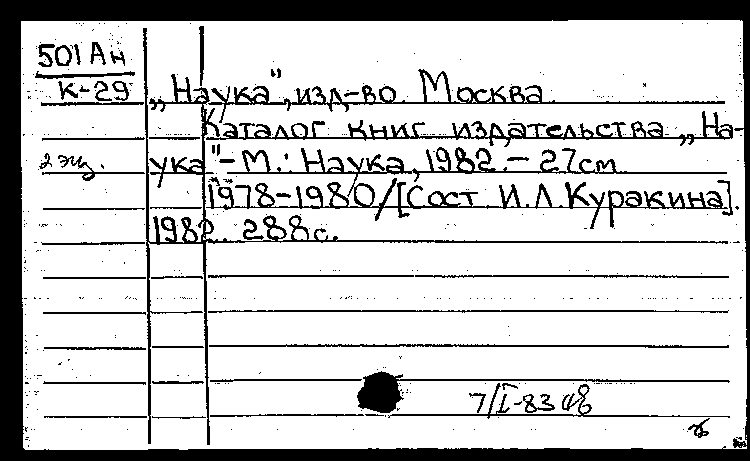 501 Ан
К-29 „Наука", изд-во. Москва.
Каталог книг издательства „На-
2 экз. ука" - М.: Наука, 1982. - 27см
1978-1980/[Сост. И.Л.Куракина].
1982. 288с.
7/I-83